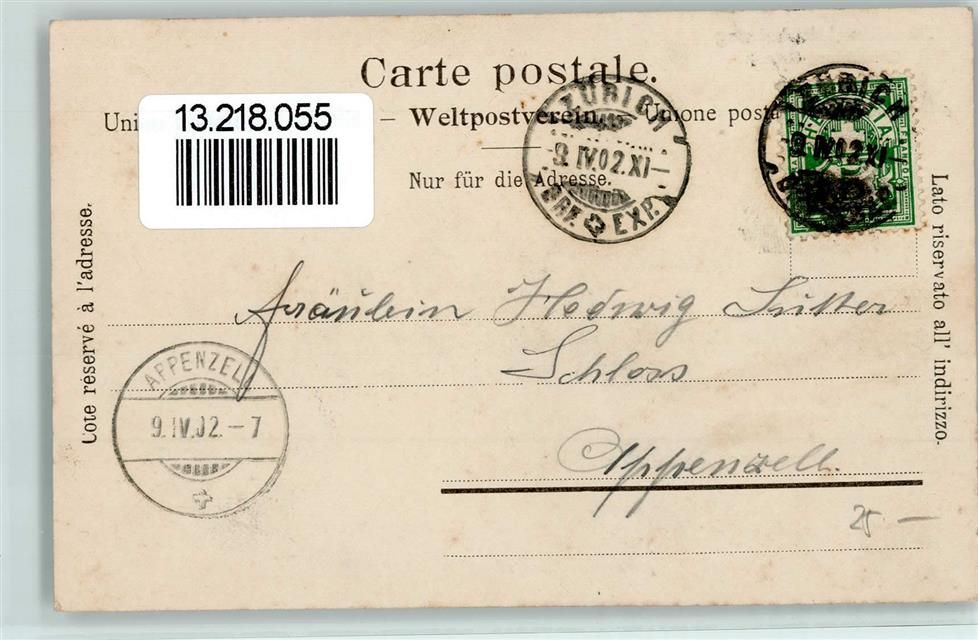 Carte postale.
13.218.055
Uni – Weltpostverein. Unione posta
Nur für die Adresse.
ZÜRICH
9.IV.02.XI–
BRF. EXP.
ZÜRICH
9.IV.02.XI–
Fräulein Hedwig Sutter
Schloss
Appenzell.
APPENZELL
9.IV.02.–7
25 –
Côté réservé à l'adresse.
Lato riservato all' indirizzo.